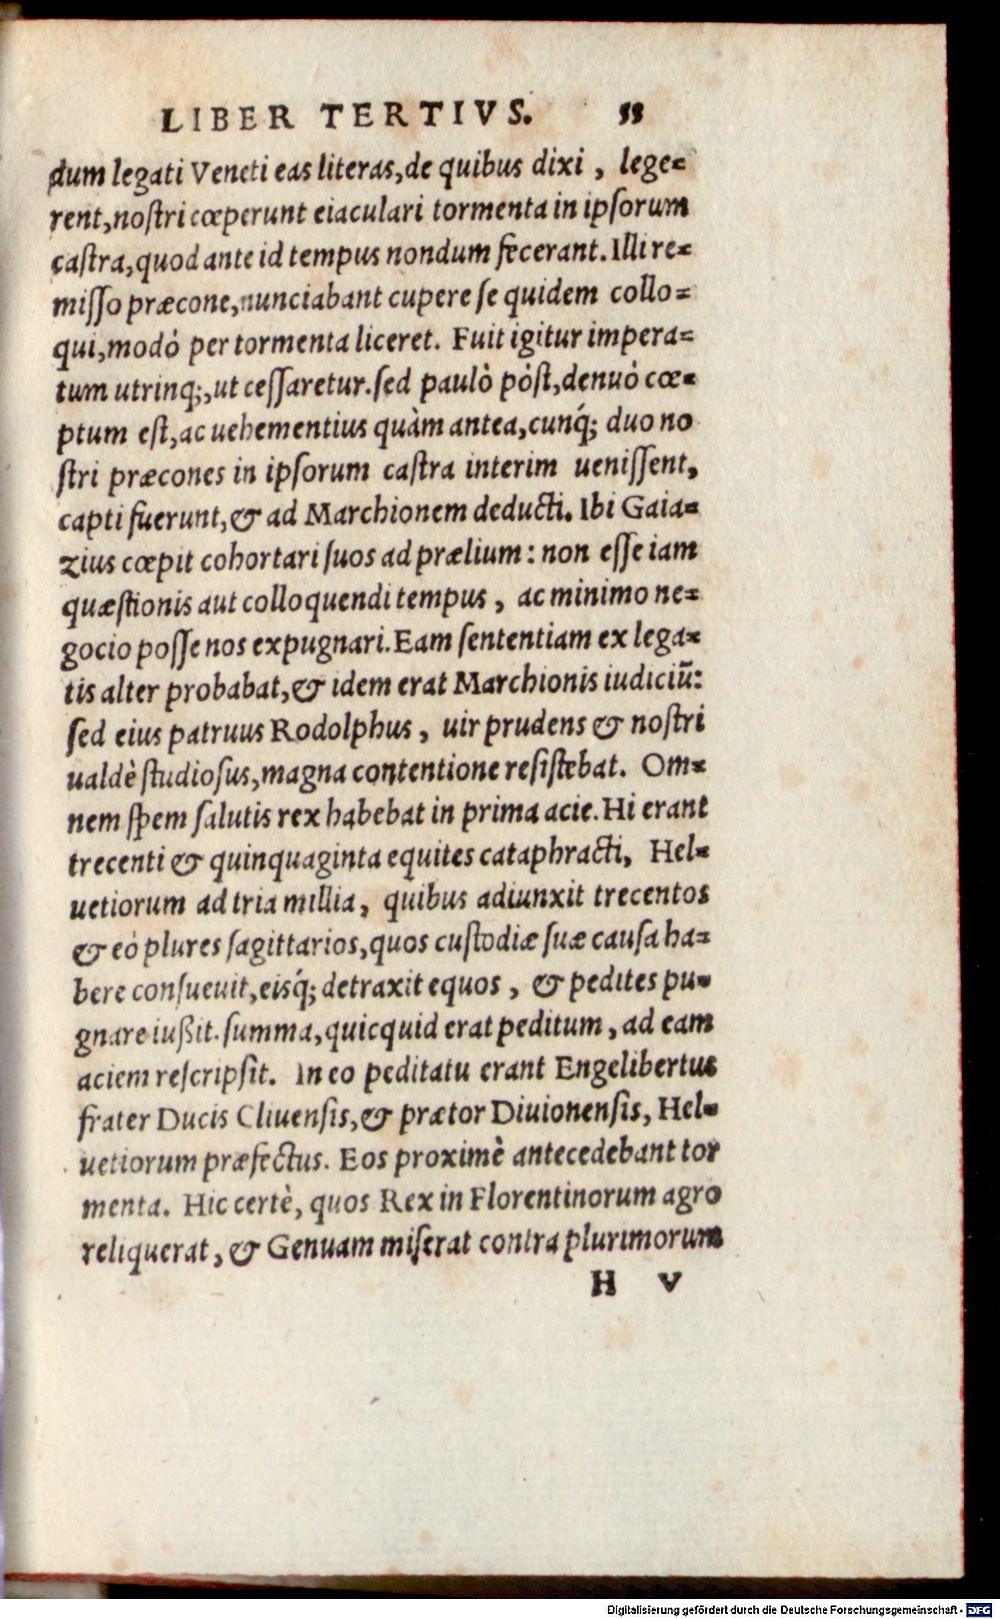 LIBER TERTIVS. 55
dum legati Veneti eas literas, de quibus dixi, lege=
rent, nostri cœperunt eiaculari tormenta in ipsorum
castra, quod ante id tempus nondum fecerant. Illi re=
misso præcone, nunciabant cupere se quidem collo=
qui, modò per tormenta liceret. Fuit igitur impera=
tum utrinq;, ut cessaretur. sed paulò pòst, denuò cœ=
ptum est, ac uehementius quàm antea, cunq́; duo no
stri præcones in ipsorum castra interim uenissent,
capti fuerunt, & ad Marchionem deducti. Ibi Gaia=
zius cœpit cohortari suos ad prælium: non esse iam
quæstionis aut colloquendi tempus, ac minimo ne=
gocio posse nos expugnari. Eam sententiam ex lega=
tis alter probabat, & idem erat Marchionis iudiciū:
sed eius patruus Rodolphus, uir prudens & nostri
ualdè studiosus, magna contentione resistebat. Om=
nem spem salutis rex habebat in prima acie. Hi erant
trecenti & quinquaginta equites cataphracti, Hel=
uetiorum ad tria millia, quibus adiunxit trecentos
& eò plures sagittarios, quos custodiæ suæ causa ha=
bere consueuit, eisq́; detraxit equos, & pedites pu=
gnare iußit. summa, quicquid erat peditum, ad eam
aciem rescripsit. In eo peditatu erant Engelibertus
frater Ducis Cliuensis, & prætor Diuionensis, Hel=
uetiorum præfectus. Eos proximè antecedebant tor
menta. Hic certè, quos Rex in Florentinorum agro
reliquerat, & Genuam miserat contra plurimorum
H v
Digitalisierung gefördert durch die Deutsche Forschungsgemeinschaft - DFG